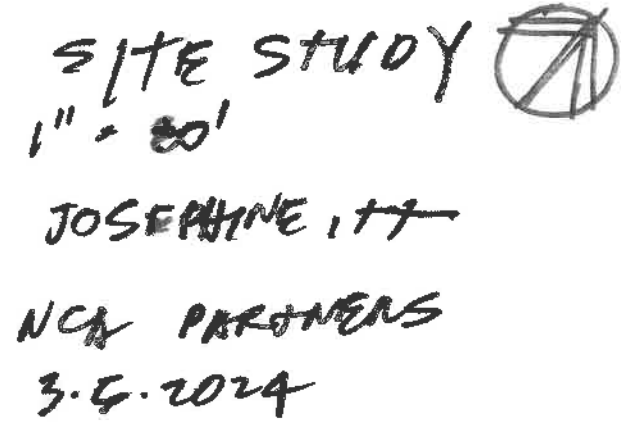 SITE STUDY
1" = 80'
JOSEPHINE, TX
NCA PARTNERS
3.5.2024